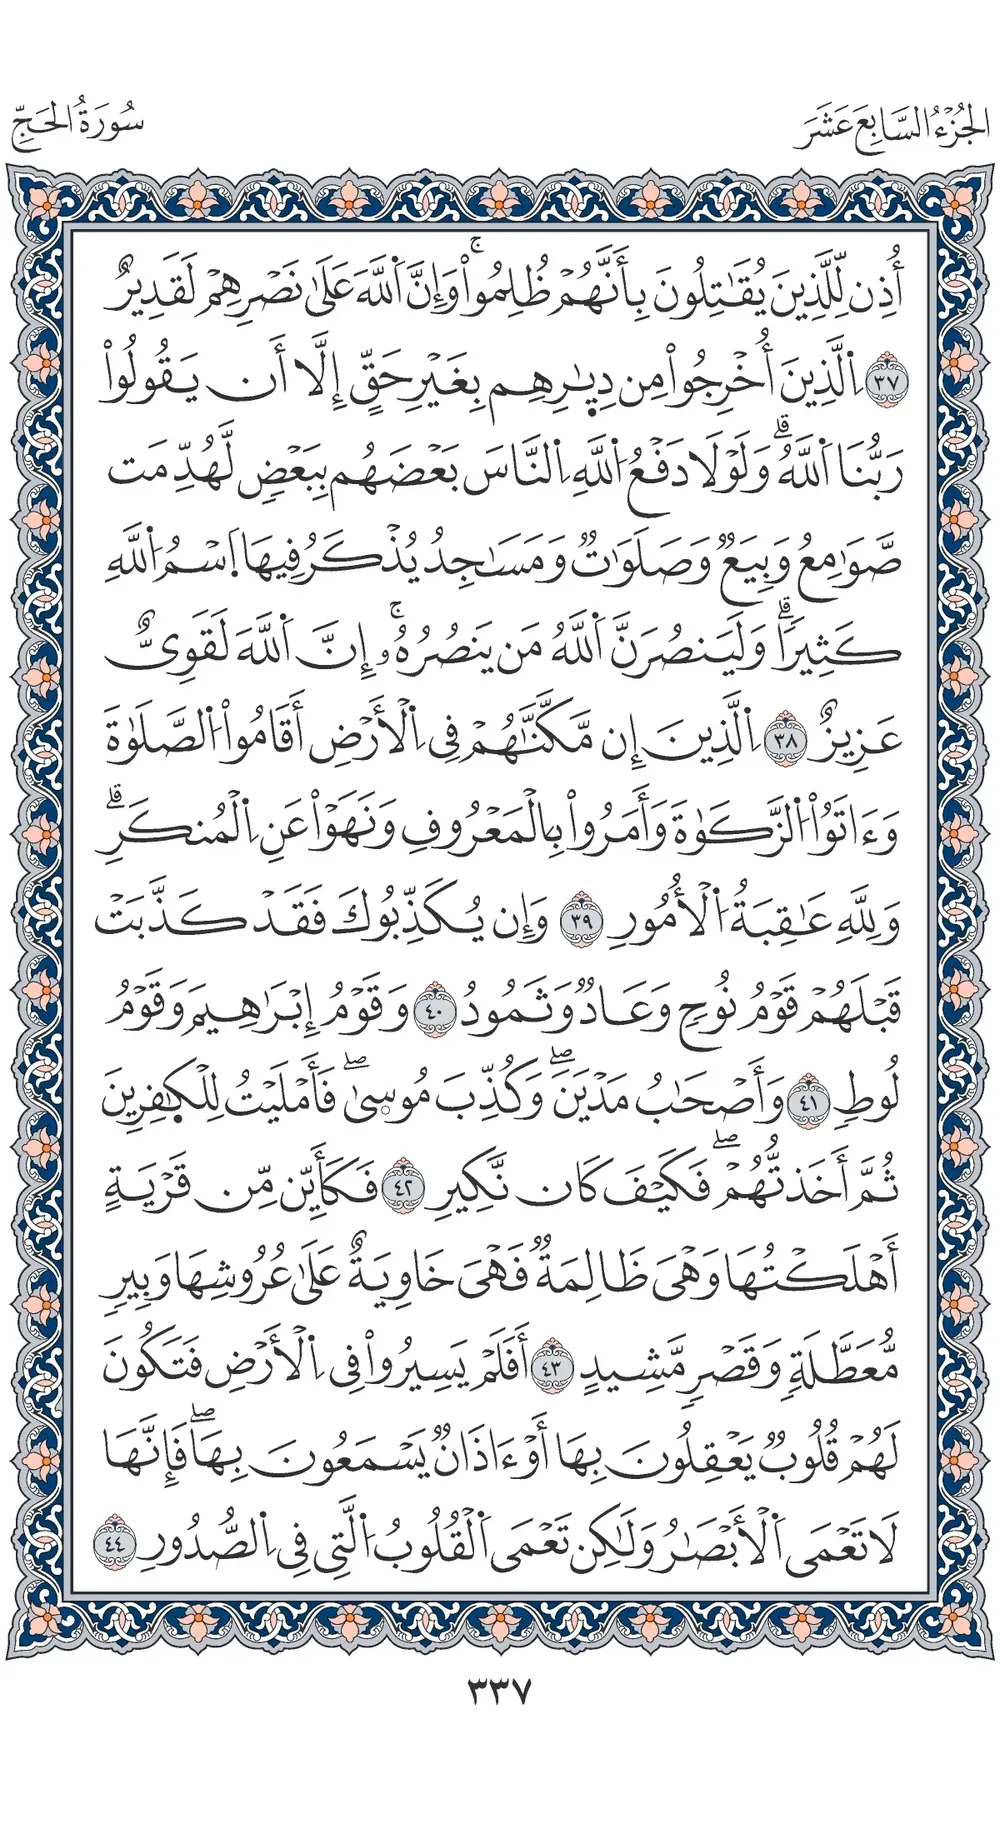 الجُزْءُ السَّابِعَ عَشَرَ
سُورَةُ الحَجِّ
أُذِن لِّلَّذِينَ يُقَٰتِلُونَ بِأَنَّهُمۡ ظُلِمُواْۚ وَإِنَّ ٱللَّهَ عَلَىٰ نَصۡرِهِمۡ لَقَدِيرٌ
٣٧ ٱلَّذِينَ أُخۡرِجُواْ مِن دِيٰ۪رِهِم بِغَيۡرِ حَقٍّ إِلَّا أَن يَقُولُواْ
رَبُّنَا ٱللَّهُۗ وَلَوۡلَا دَفۡعُ ٱللَّهِ ٱلنَّاسَ بَعۡضَهُم بِبَعۡضٖ لَّهُدِّمَت
صَّوَٰمِعُ وَبِيَعٞ وَصَلَوَٰتٞ وَمَسَٰجِدُ يُذۡكَرُ فِيهَا ٱسۡمُ ٱللَّهِ
كَثِيرٗاۗ وَلَيَنصُرَنَّ ٱللَّهُ مَن يَنصُرُهُۥۚ إِنَّ ٱللَّهَ لَقَوِيٌّ
عَزِيزٌ ٣٨ ٱلَّذِينَ إِن مَّكَّنَّٰهُمۡ فِي ٱلۡأَرۡضِ أَقَامُواْ ٱلصَّلَوٰةَ
وَءَاتَوُاْ ٱلزَّكَوٰةَ وَأَمَرُواْ بِٱلۡمَعۡرُوفِ وَنَهَوۡاْ عَنِ ٱلۡمُنكَرِۗ
وَلِلَّهِ عَٰقِبَةُ ٱلۡأُمُورِ ٣٩ وَإِن يُكَذِّبُوكَ فَقَدۡ كَذَّبَتۡ
قَبۡلَهُمۡ قَوۡمُ نُوحٖ وَعَادٞ وَثَمُودُ ٤٠ وَقَوۡمُ إِبۡرَٰهِيمَ وَقَوۡمُ
لُوطٖ ٤١ وَأَصۡحَٰبُ مَدۡيَنَۖ وَكُذِّبَ مُوس۪ىٰۖ فَأَمۡلَيۡتُ لِلۡكٰ۪فِرِينَ
ثُمَّ أَخَذتُّهُمۡۖ فَكَيۡفَ كَان نَّكِيرِ ٤٢ فَكَأَيِّن مِّن قَرۡيَةٍ
أَهۡلَكۡتُهَا وَهۡيَ ظَالِمَةٞ فَهۡيَ خَاوِيَةٌ عَلَىٰ عُرُوشِهَا وَبِيرٖ
مُّعَطَّلَةٖ وَقَصۡرٖ مَّشِيدٍ ٤٣ أَفَلَمۡ يَسِيرُواْ فِي ٱلۡأَرۡضِ فَتَكُونَ
لَهُمۡ قُلُوبٞ يَعۡقِلُونَ بِهَا أَوۡ ءَاذَانٞ يَسۡمَعُونَ بِهَاۖ فَإِنَّهَا
لَا تَعۡمَى ٱلۡأَبۡصَٰرُ وَلَٰكِن تَعۡمَى ٱلۡقُلُوبُ ٱلَّتِي فِي ٱلصُّدُورِ ٤٤
٣٣٧